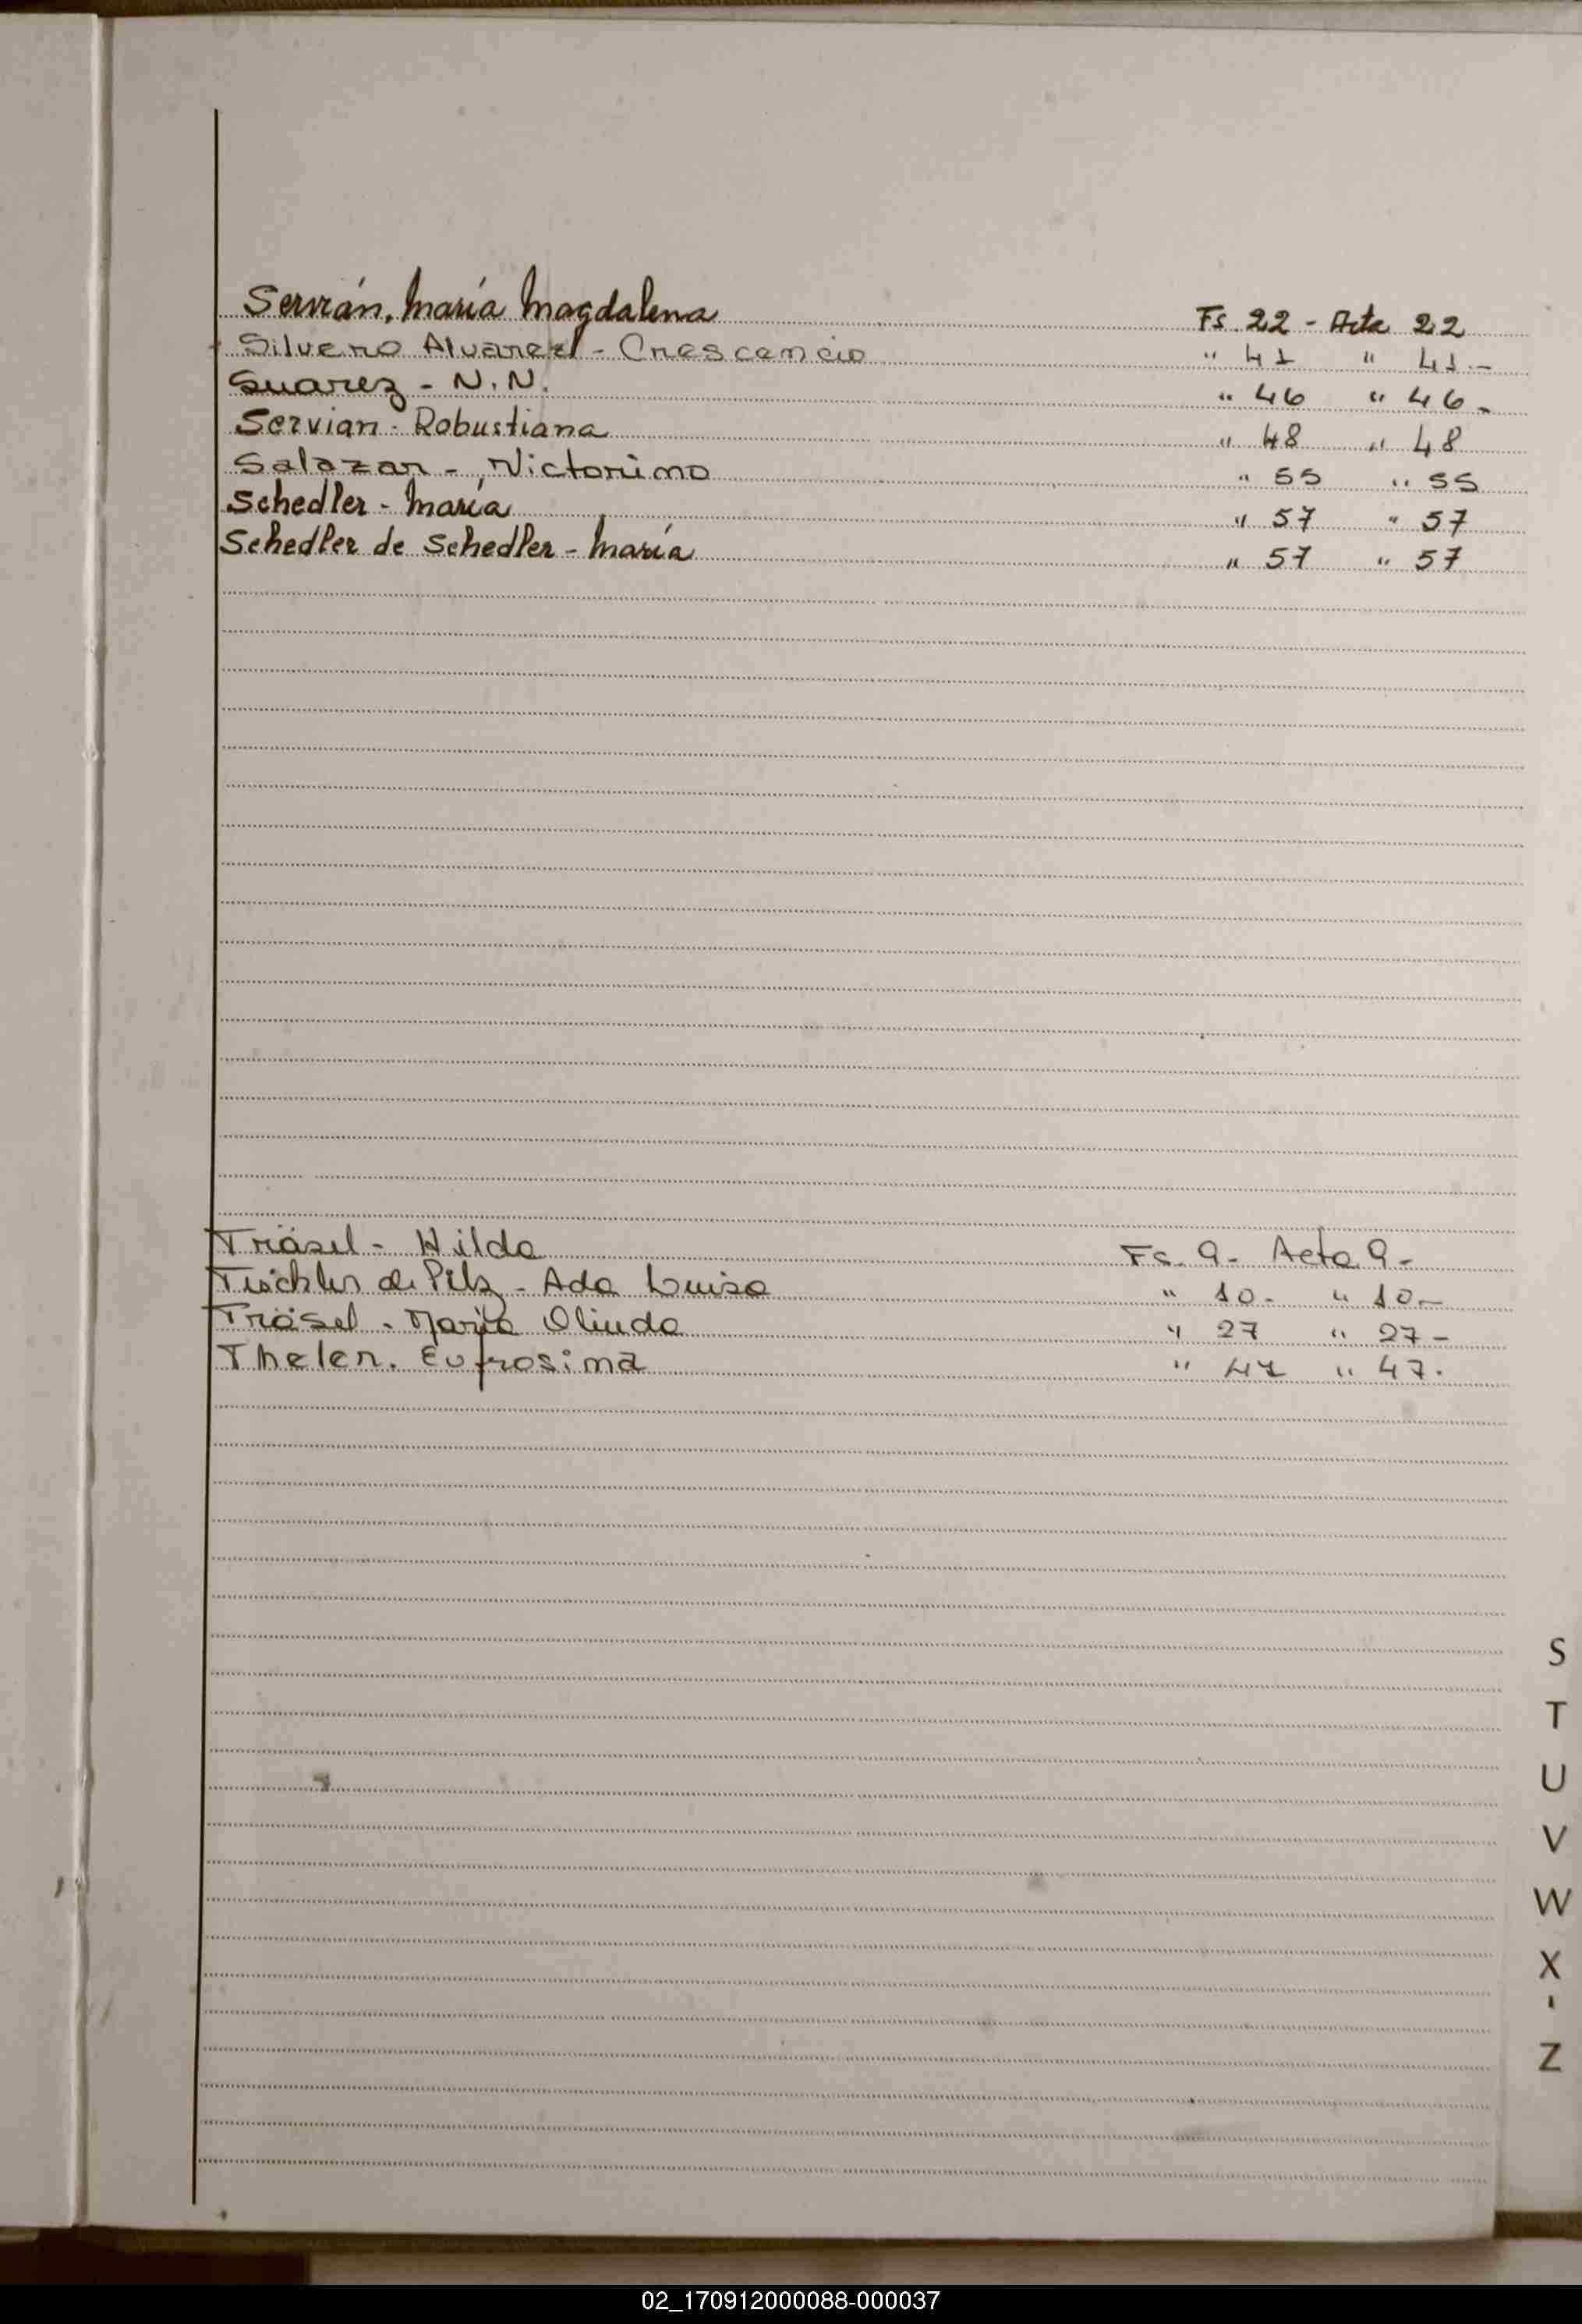 Servián, María Magdalena Fs 22 - Acta 22
Silvero Alvarez - Crescencio " 41 " 41.-
Suarez - N.N. " 46 " 46-
Servian - Robustiana " 48 " 48
Salazar - Victorino " 55 " 55
Schedler - María " 57 " 57
Schedler de Schedler - María " 57 " 57
Träsel - Hilda Fs. 9- Acta 9-
Tischler de Pilz - Ada Luisa " 10- " 10-
Träsel - María Olinda " 27 " 27-
Thelen. Eufrosina " 47 " 47.
S
T
U
V
W
X
-
Z
02_170912000088-000037